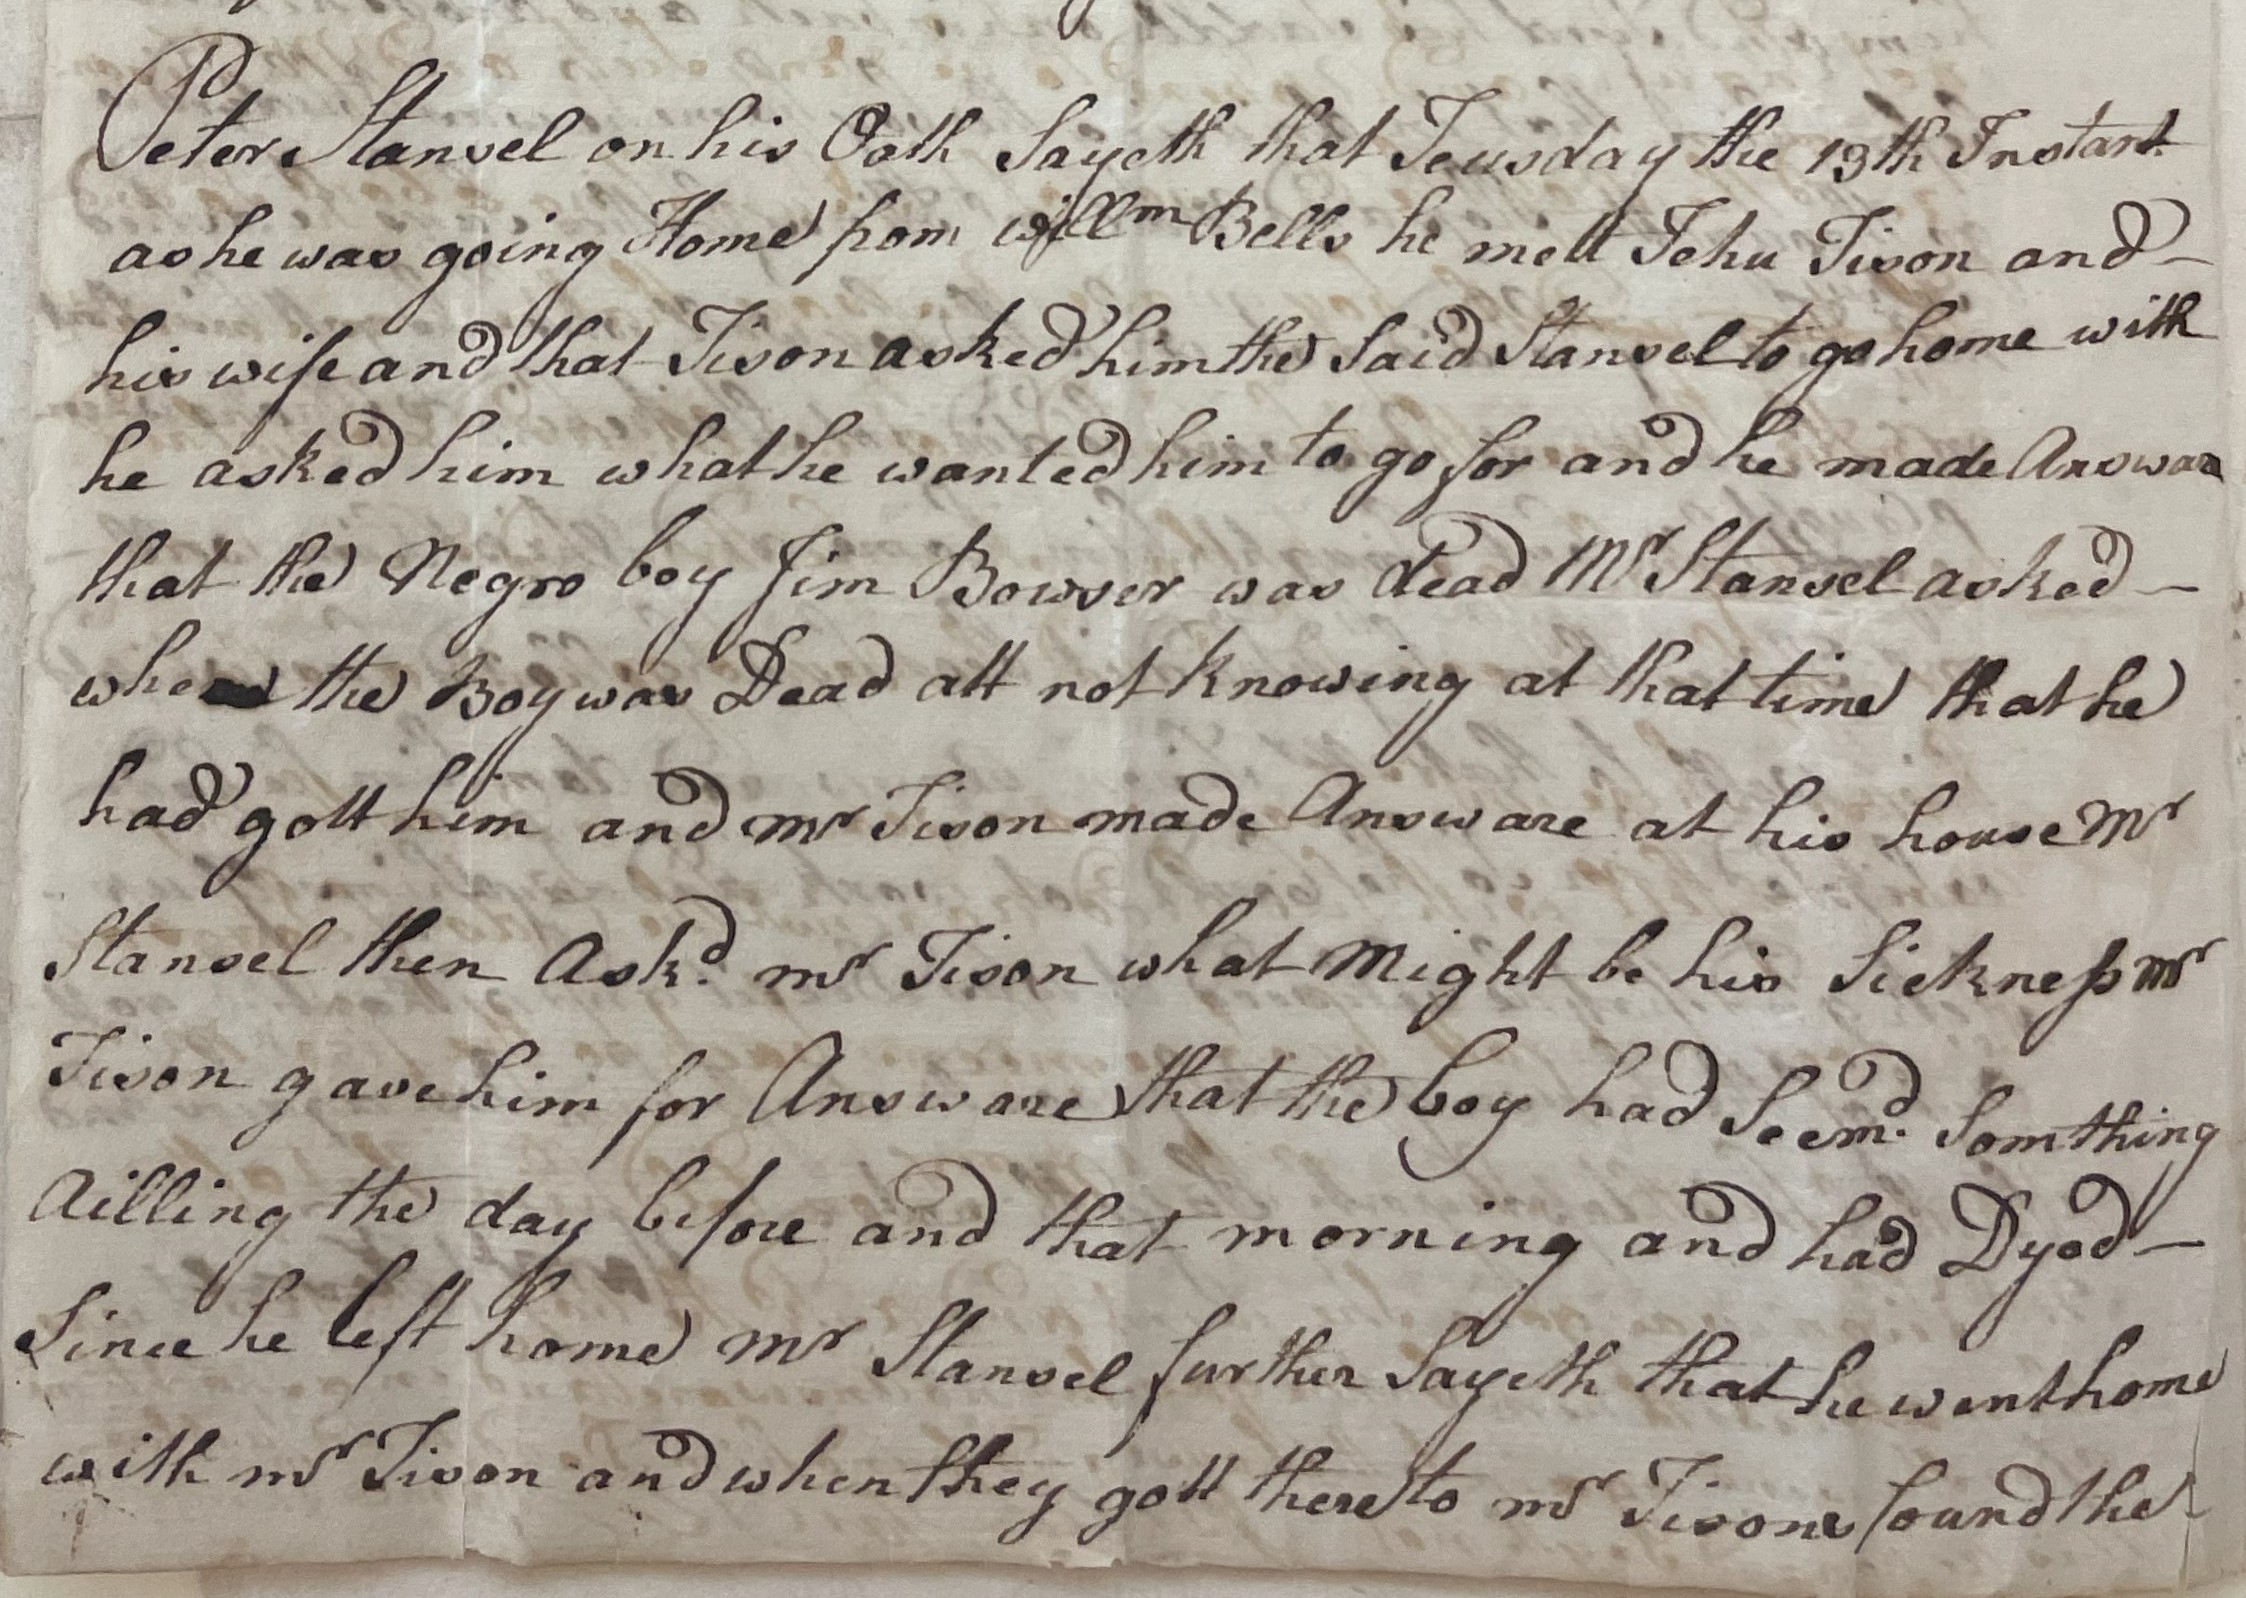 Peter Stansel on his Oath Sayeth that Teusday the 19th Instant
as he was going Home from Willm Bells he mett Jehu Tison and
his wife and that Tison asked him the Said Stansel to go home with
he asked him what he wanted him to go for and he made Answare
that the Negro boy Jim Bowser was dead Mr Stansel asked
where the Boy was Dead att not knowing at that time that he
had gott him and mr Tison made Answare at his house Mr
Stansel then Askd. mr Tison what Might be his Sickness mr
Tison gave him for Answare that the boy had Seemd. Somthing
Ailling the day before and that morning and had Dyed
Since he left home mr Stansel further Sayeth that he went home
with mr Tison and when they gott there to mr Tisons found the